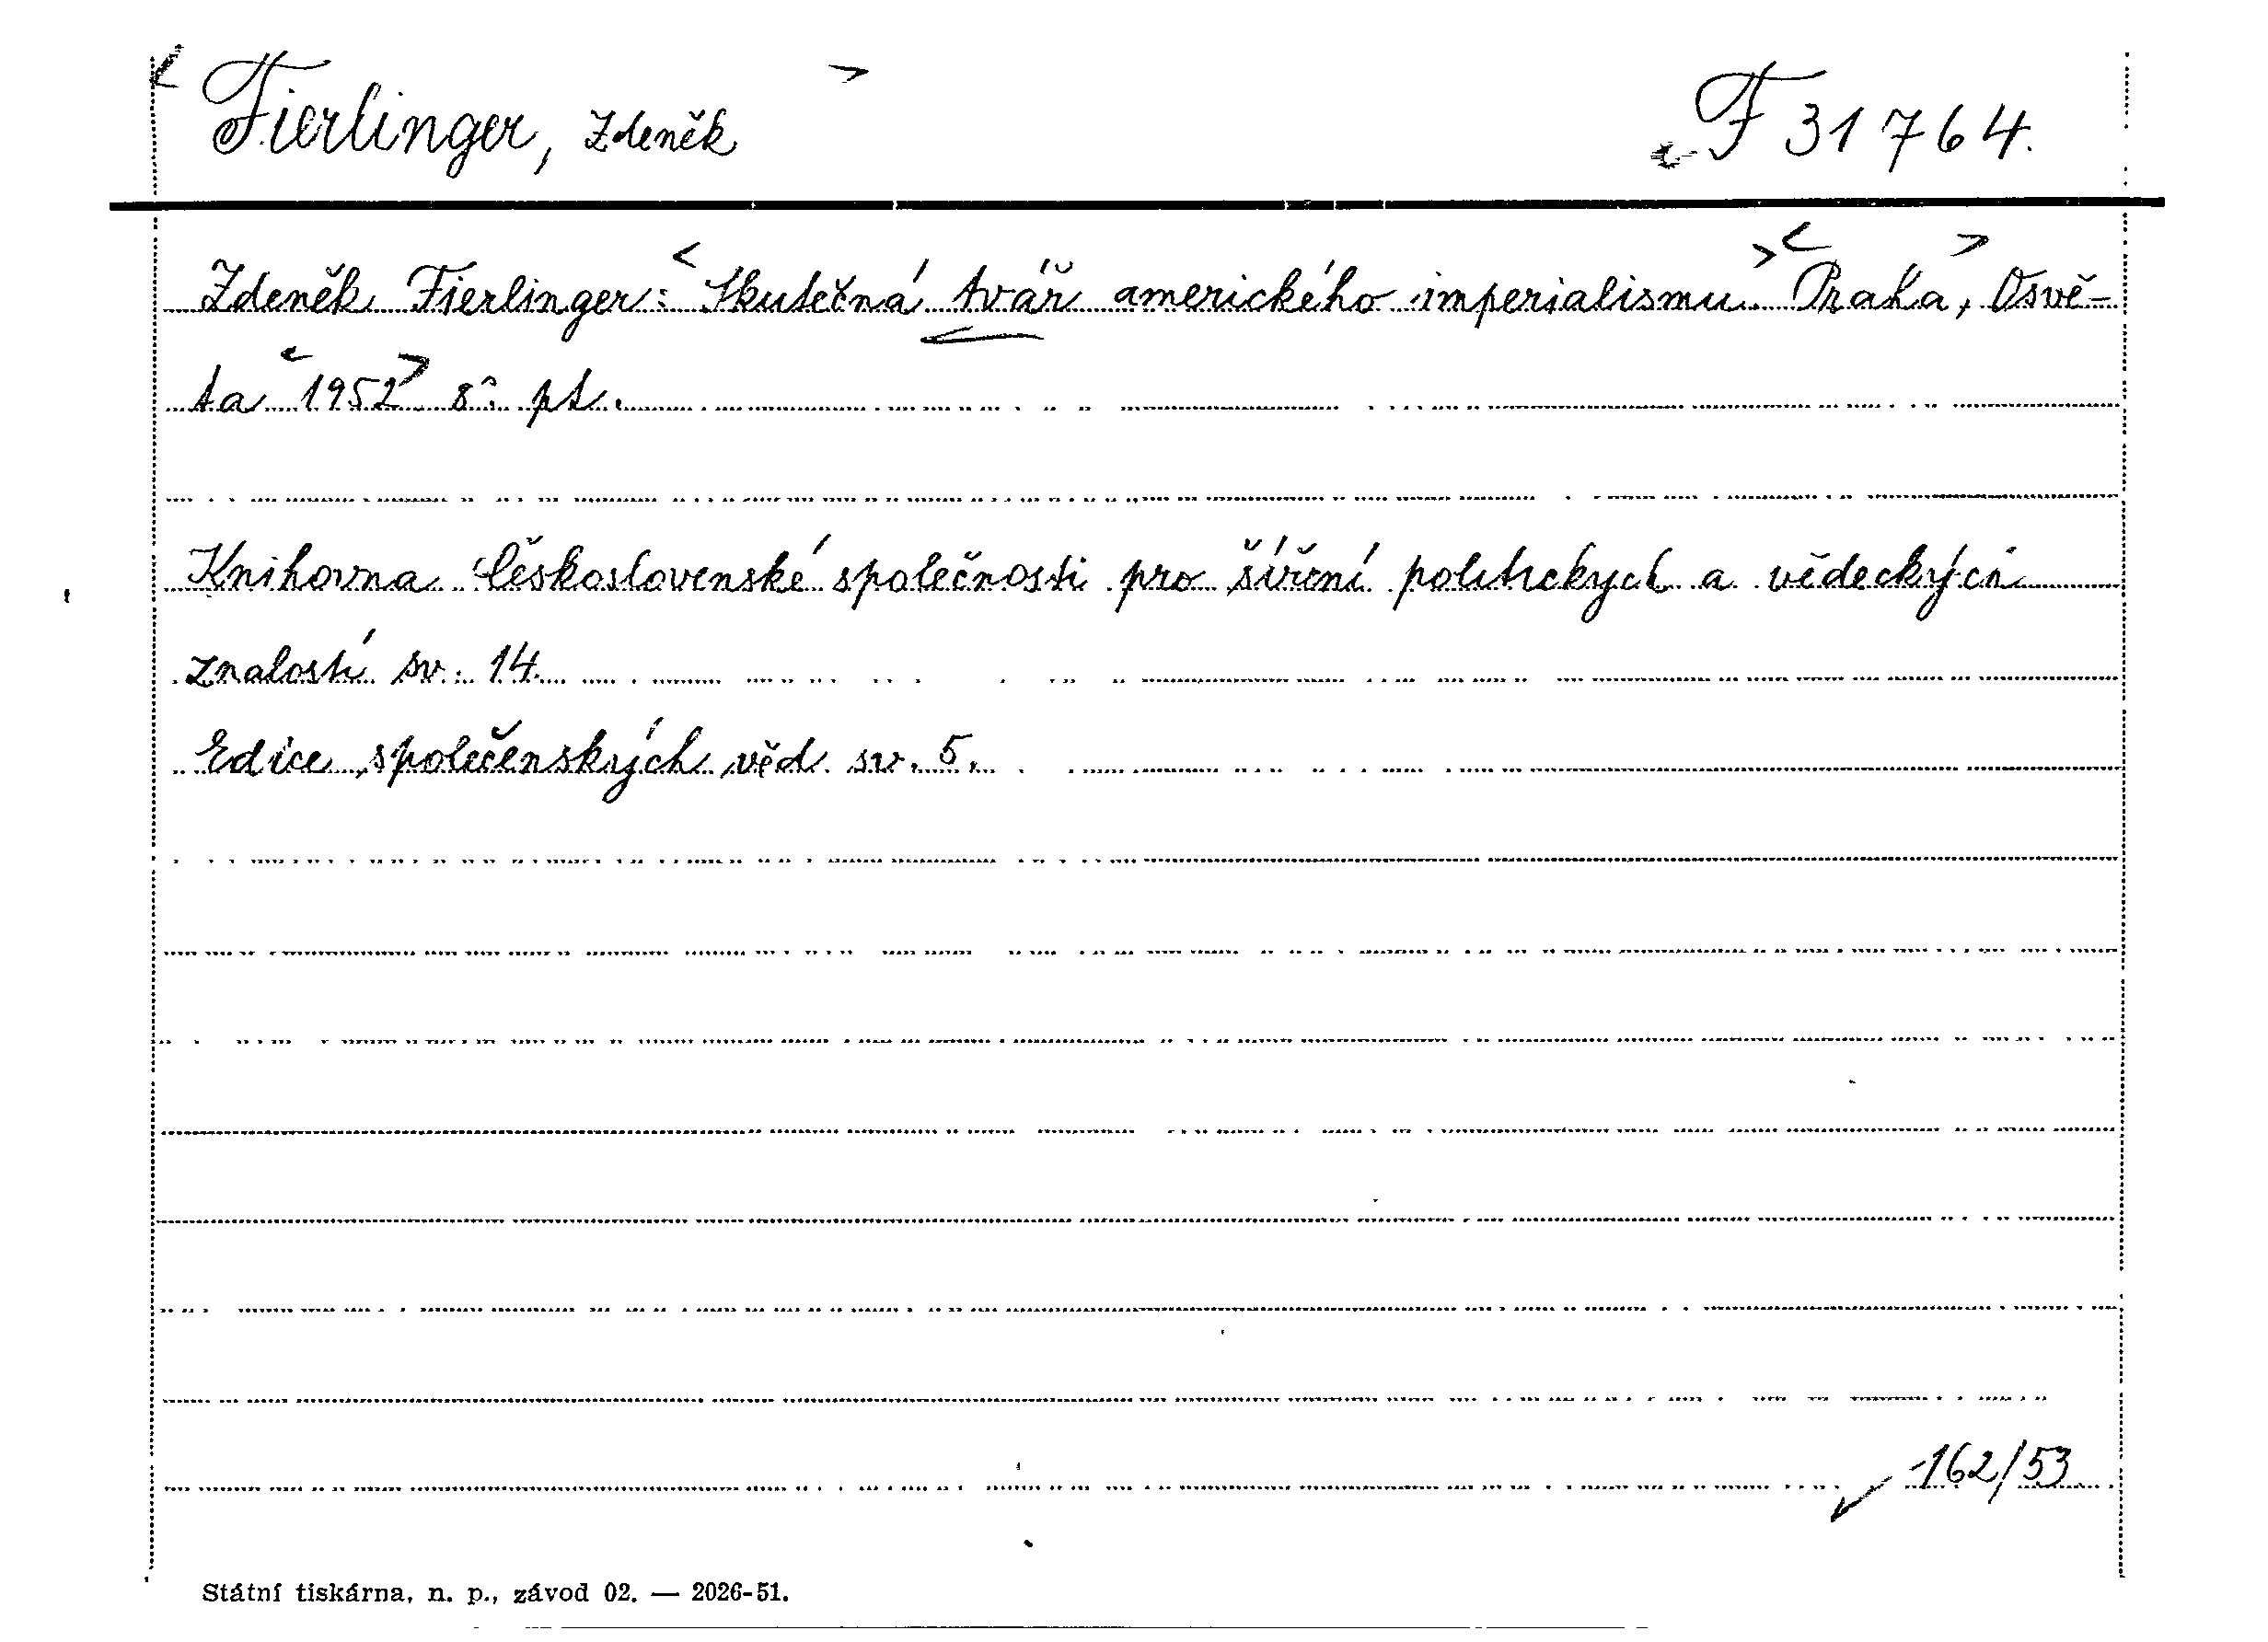 Fierlinger, Zdeněk
F 31764.
Zdeněk Fierlinger: Skutečná tvář amerického imperialismu. Praha, Osvě-
ta 1952 8°. pt.
Knihovna Československé společnosti pro šíření politických a vědeckých
znalostí sv. 14.
Edice společenských věd sv. 5.
162/53
Státní tiskárna, n. p., závod 02. — 2026-51.